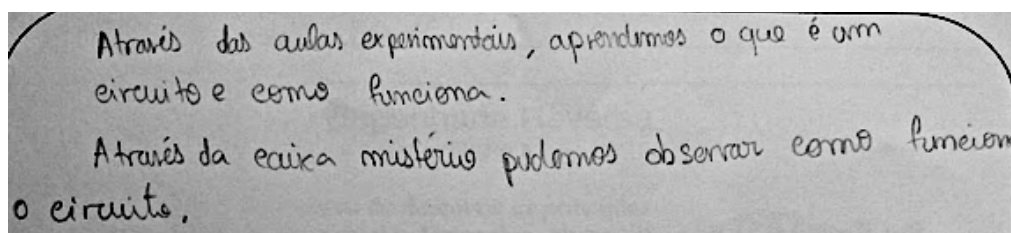 Através das aulas experimentais, aprendemos o que é um
circuito e como funciona.
Através da caixa mistério pudemos observar como funcion
o circuito.